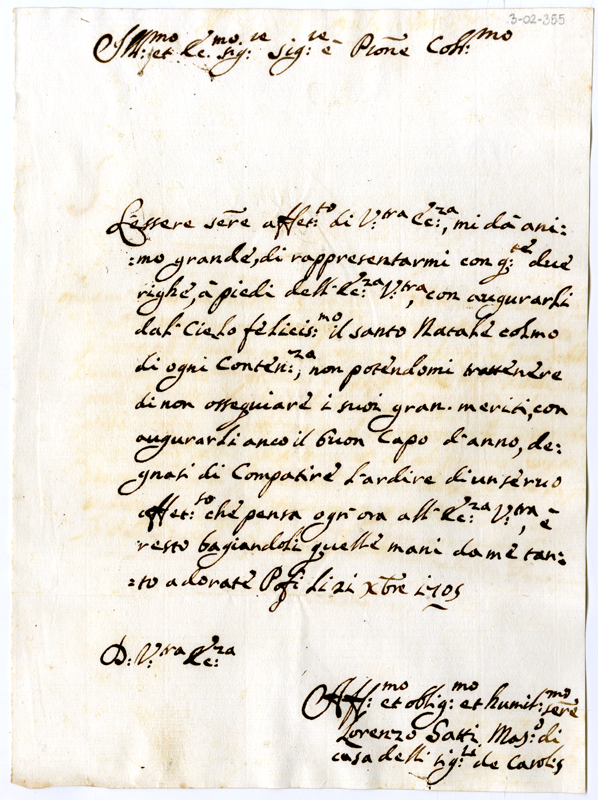 3-02-355
Ill:mo et Ec.mo sig:re sig:re è Pron̄e Col:mo
L'essere sere affet:to di V:tra Ec:za, mi dà ani:
:mo grande, di rappresentarmi con q:te due
righe, à piedi dell'Ec:za V:tra, con augurarli
dal Cielo felicis:mo il santo Natale colmo
di ogni Conten:za, non potendomi trattenere
di non ossequiare i suoi gran. meriti, con
augurarli anco il buon Capo d'anno, de:
gnasi di Compatire l'ardire di un servo
affet:so che pensa ogn'ora all'Ec:za V:tra, è
resto bagiandoli quelle mani da me tan:
:to adorate Pofi li 21 xbre 1705
D: V:tra Ec:za
Aff:mo et oblig:mo et humil:mo sere
Lorenzo Satti Mas:o di
casa delli sig:ri de Carolis